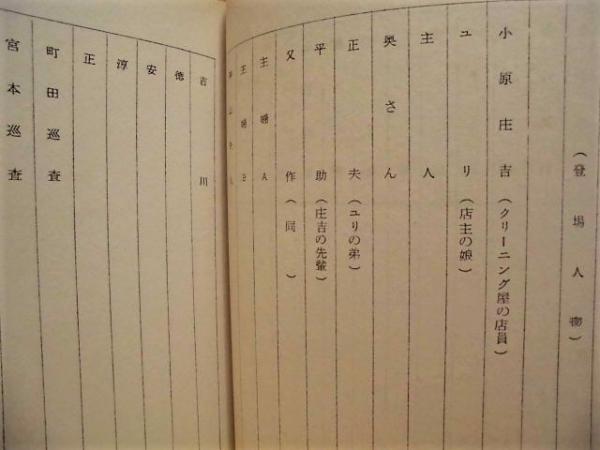 (登場人物)
小原庄吉(クリーニング屋の店員)
ユリ(店主の娘)
主人
奥さん
正夫(ユリの弟)
平助(庄吉の先輩)
又作(同)
主婦A
主婦B
吉川
徳
安
淳
正
町田巡査
宮本巡査